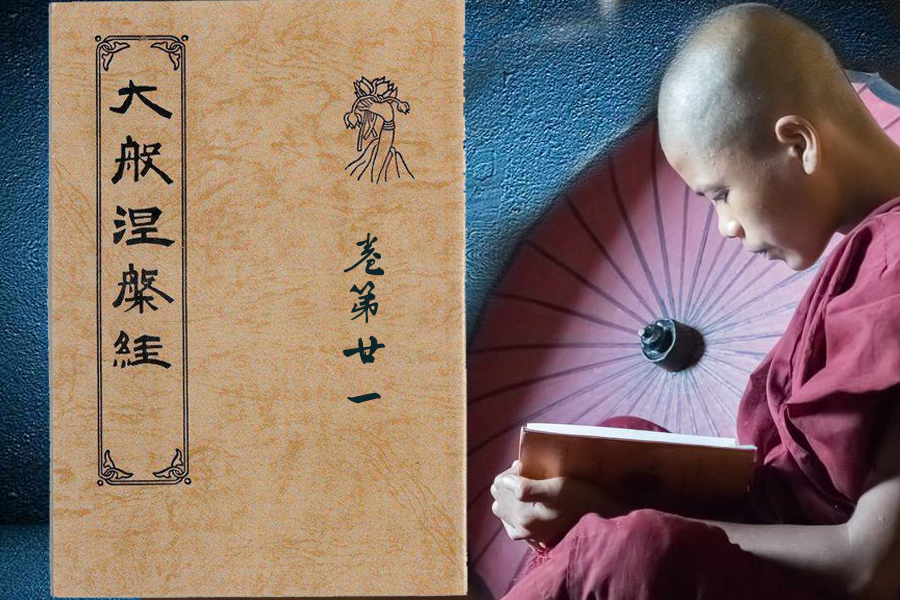 大般涅槃經
卷第廿一